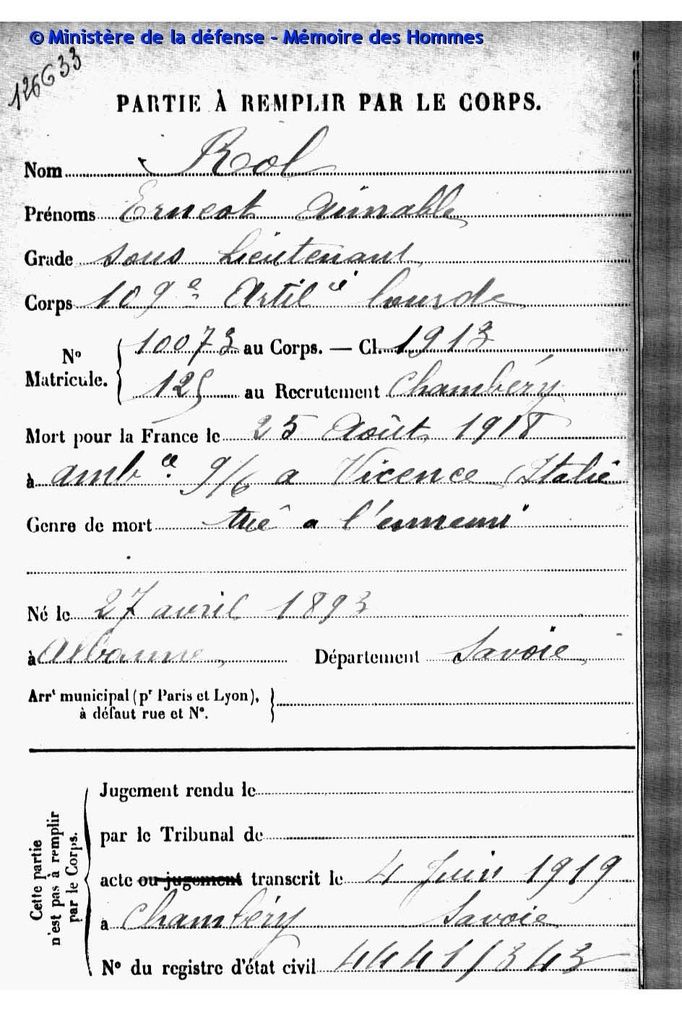 © Ministère de la défense - Mémoire des Hommes
126G33
PARTIE À REMPLIR PAR LE CORPS.
Nom Rol
Prénoms Ernest Aimable
Grade sous Lieutenant
Corps 109e Artilie lourde
No Matricule. { 10073 au Corps. — Cl. 1913
125 au Recrutement Chambéry
Mort pour la France le 25 Août 1918
à ambce 9/6 a Vicence (Italie
Genre de mort tué a l'ennemi
Né le 27 avril 1893
à Albanne Département Savoie
Arrt municipal (pr Paris et Lyon),
à défaut rue et No. }
Cette partie
n'est pas à remplir
par le Corps.
Jugement rendu le
par le Tribunal de
acte ou jugement transcrit le 4 Juin 1919
a Chambéry Savoie
No du registre d'état civil 4441/343